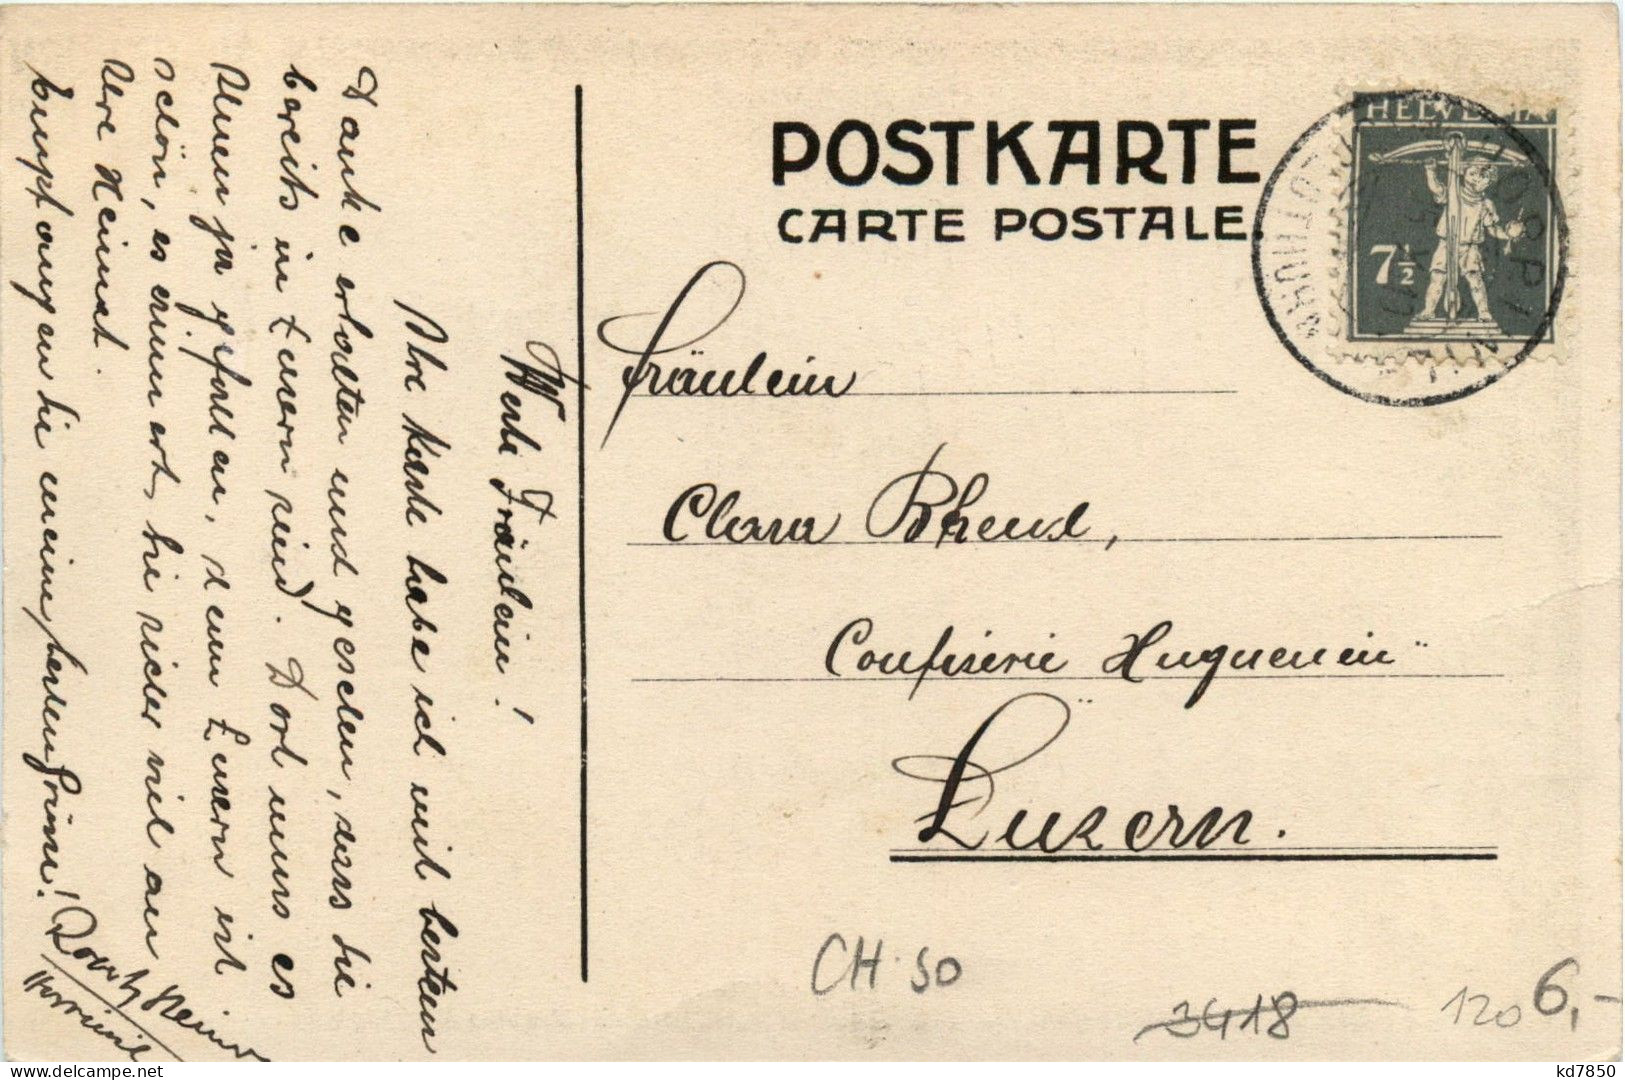 POSTKARTE
CARTE POSTALE.
HELVETIA
7½
HOSPI
Fräulein
Clara Rheud,
Confiserie Huguenein
Luzern.
Werte Fräulein!
Ihre Karte habe ich mit bestem
Danke erhalten und gesehen, dass Sie
bereits in Luzern sind. Dort muss es
Ihnen ja gefallen, denn Luzern ist
schön, es erinnert Sie sicher viel an
Ihre Heimat.
Empfangen Sie meine besten Grüsse!
CH SO
3418
120
6,-
kd7850